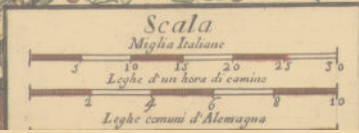 Scala
Miglia Italiane
5 10 15 20 25 30
Leghe d'un hora di camino
2 4 6 8 10
Leghe comuni d'Alemagna